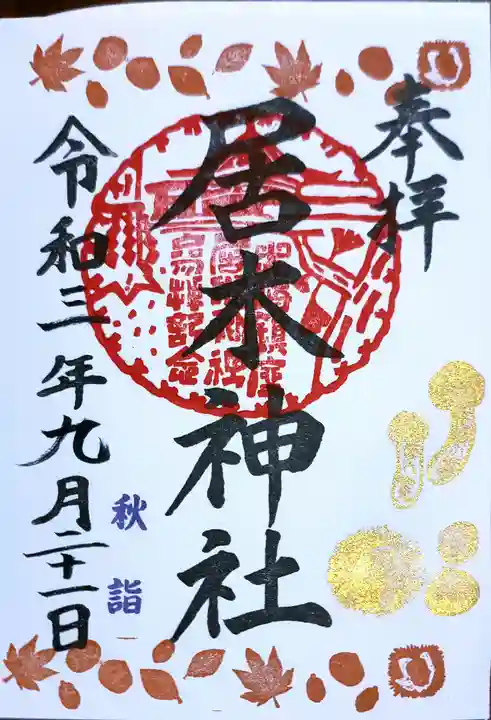 奉拝
居木神社
令和三年九月二十一日
秋詣